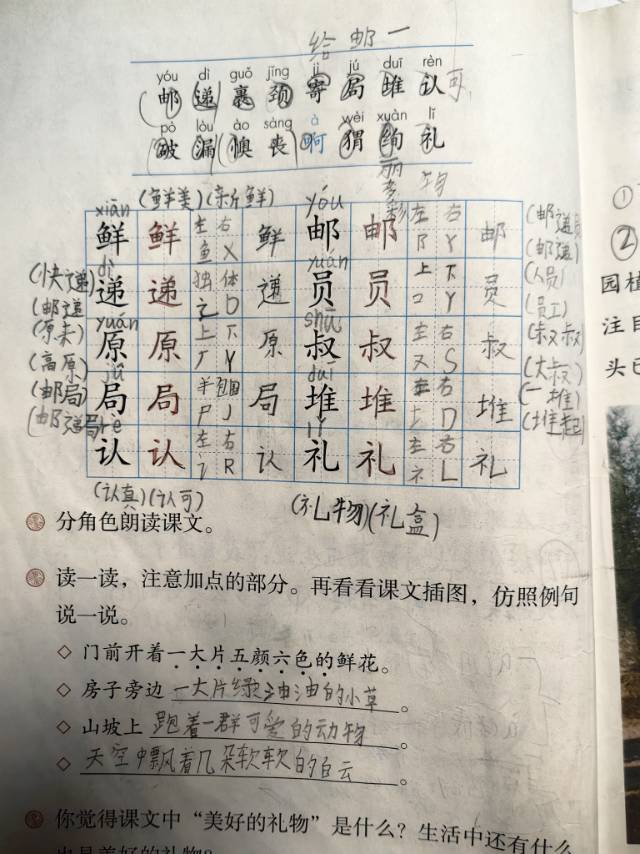 给邮一
yóu dì guǒ jǐng jì jú duī rèn
邮递裹颈寄局堆认可
pò lòu ào sàng à wèi xuàn lǐ
破漏懊丧啊猬绚礼
丽多彩 物
(鲜美)(新鲜)
xiān 鲜 鲜 左右鱼X 鲜 yóu 邮 邮 左右阝Y 邮 (邮递员)(邮递)
(快递)(邮递) dì 递 递 独体辶D 递 yuán 员 员 上下口Y 员 (人员)(员工)
(原来)(高原) yuán 原 原 上下厂Y 原 shū 叔 叔 左右又S 叔 (叔叔)(大叔)
(邮局)(邮递局) jú 局 局 半包围尸J 局 duī 堆 堆 左右土D 堆 (一堆)(堆起)
rè 认 认 左右讠R 认 lǐ 礼 礼 左右礻L 礼
(认真)(认可) (礼物)(礼盒)
分角色朗读课文。
读一读,注意加点的部分。再看看课文插图,仿照例句
说一说。
◇ 门前开着一大片五颜六色的鲜花。
◇ 房子旁边一大片绿油油的小草。
◇ 山坡上跑着一群可爱的动物。
◇ 天空中飘着几朵软软的白云。
你觉得课文中“美好的礼物”是什么?生活中还有什么
①
②
园植
注目
头已